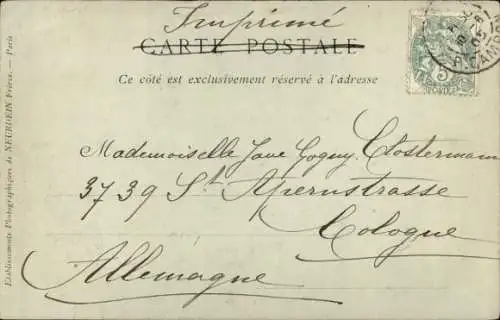 Imprimé
CARTE POSTALE
Ce côté est exclusivement réservé à l'adresse
Mademoiselle Jane Goguy Clostermann
3739 St Apernstrasse
Cologne
Allemagne
Etablissements Photographiques de NEURDEIN Frères. — Paris
5